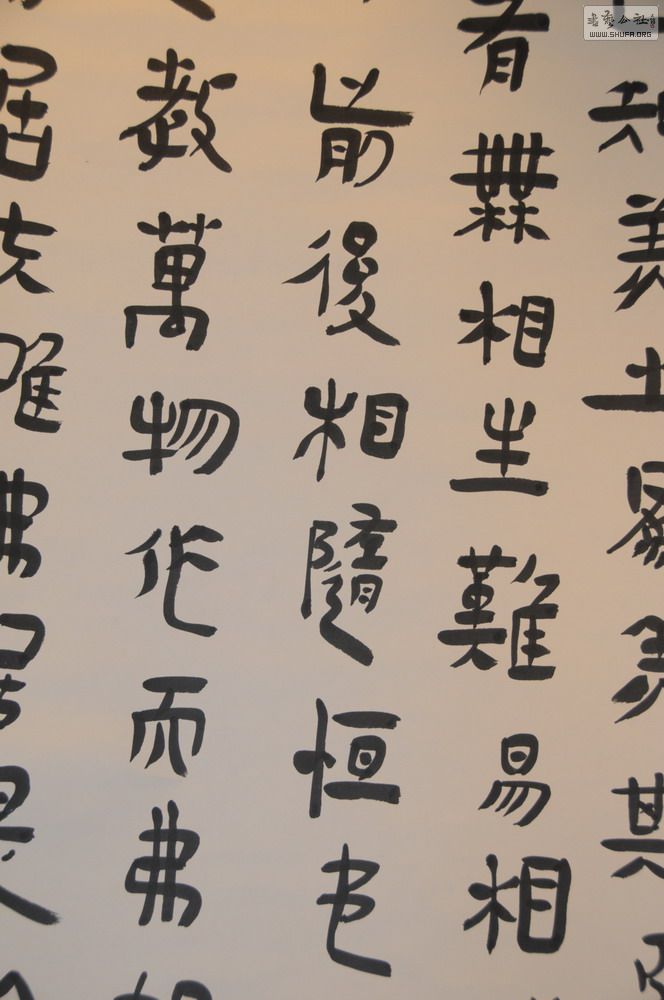 知美之為美其
有無相生難易相
前後相隨恒也
教萬物作而弗
居夫唯弗居是
書藝公社
WWW.SHUFA.ORG